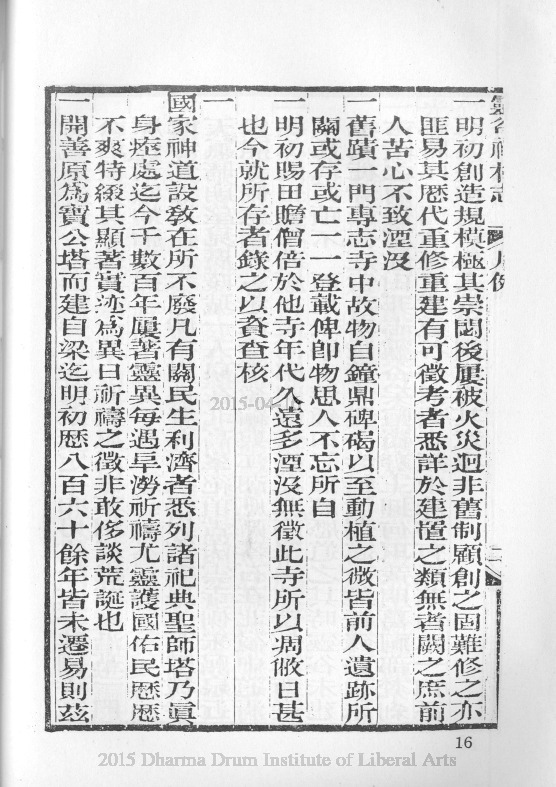 靈谷禪林志 凡例 二
一明初創造規模極其崇閎後屢被火災迥非舊制顧創之固難修之亦
匪易其歷代重修重建有可徵考者悉詳於建置之類無者闕之庶前
人苦心不致湮沒
一舊蹟一門專志寺中故物自鐘鼎碑碣以至動植之微皆前人遺跡所
關或存或亡一一登載俾卽物思人不忘所自
一明初賜田贍僧倍於他寺年代久遠多湮沒無徵此寺所以凋敝日甚
也今就所存者錄之以資查核
一
國家神道設教在所不廢凡有關民生利濟者悉列諸祀典聖師塔乃眞
身瘞處迄今千數百年屢著靈異每遇旱澇祈禱尤靈護國佑民歷歷
不爽特綴其顯著實迹爲異日祈禱之徵非敢侈談荒誕也
一開善原爲寶公塔而建自梁迄明初歷八百六十餘年皆未遷易則茲
16
2015-04-
2015 Dharma Drum Institute of Liberal Arts